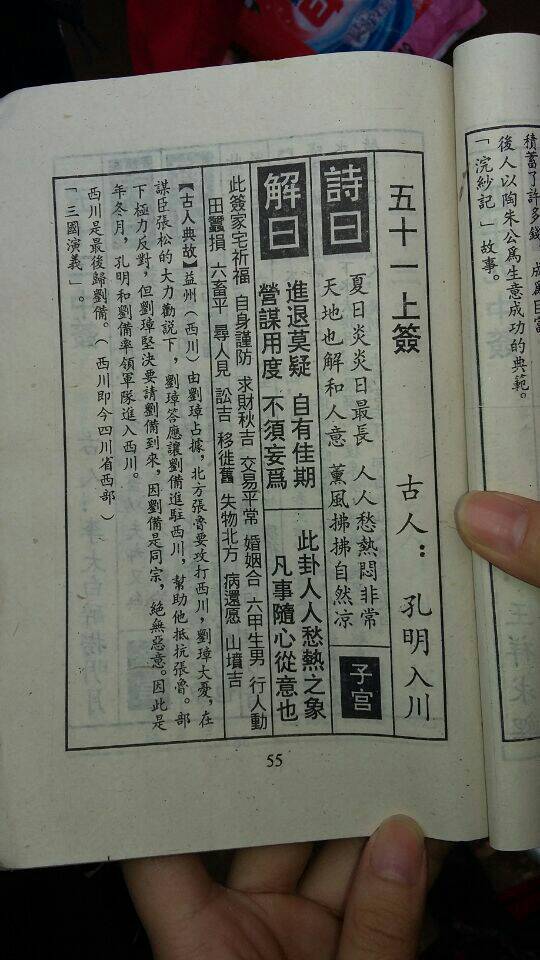 積蓄了許多錢，成爲巨富，
後人以陶朱公爲生意成功的典範。
「浣紗記」故事。
五十一上簽 古人：孔明入川
詩曰
夏日炎炎日最長 人人愁熱悶非常
天地也解和人意 薰風拂拂自然涼
子宮
解曰
進退莫疑 自有佳期
營謀用度 不須妄爲
此卦人人愁熱之象
凡事隨心從意也
此簽家宅祈福 自身謹防 求財秋吉 交易平常 婚姻合 六甲生男 行人動
田蠶損 六畜平 尋人見 訟吉 移徙舊 失物北方 病還愿 山墳吉
【古人典故】益州（西川）由劉璋占據，北方張魯要攻打西川，劉璋大憂，在
謀臣張松的大力勸説下，劉璋答應讓劉備進駐西川，幫助他抵抗張魯。部
下極力反對，但劉璋堅決要請劉備到來，因劉備是同宗，絕無惡意。因此是
年冬月，孔明和劉備率領軍隊進入西川。
西川是最後歸劉備。（西川即今四川省西部）
「三國演義」。
55